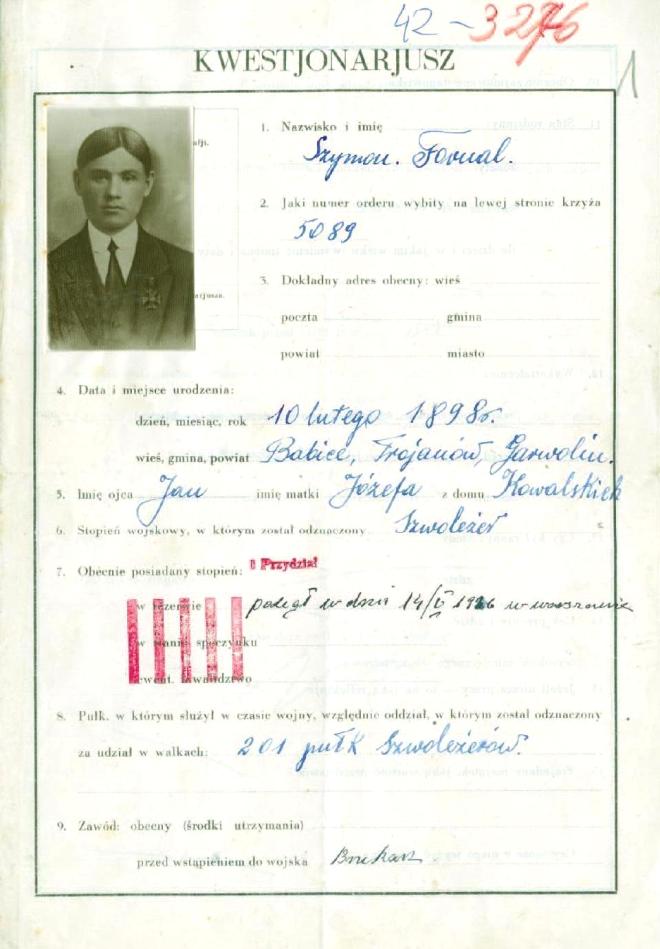 42-3276
1
KWESTJONARJUSZ
1. Nazwisko i imię
Szymon. Fornal.
2. Jaki numer orderu wybity na lewej stronie krzyża
5089
3. Dokładny adres obecny: wieś
poczta gmina
powiat miasto
4. Data i miejsce urodzenia:
dzień, miesiąc, rok 10 lutego 1898r.
wieś, gmina, powiat Babice, Trojanów, Garwolin.
5. Imię ojca Jan imię matki Józefa z domu Kowalskich
6. Stopień wojskowy, w którym został odznaczony Szwoleżer
7. Obecnie posiadany stopień: I Przydział
w rezerwie poległ w dniu 14/V 1926 w warszawie
w stanie spoczynku
ewent. inwalidztwo
8. Pułk, w którym służył w czasie wojny, względnie oddział, w którym został odznaczony
za udział w walkach: 201 pułk Szwoleżerów.
9. Zawód: obecny (środki utrzymania)
przed wstąpieniem do wojska Brukarz